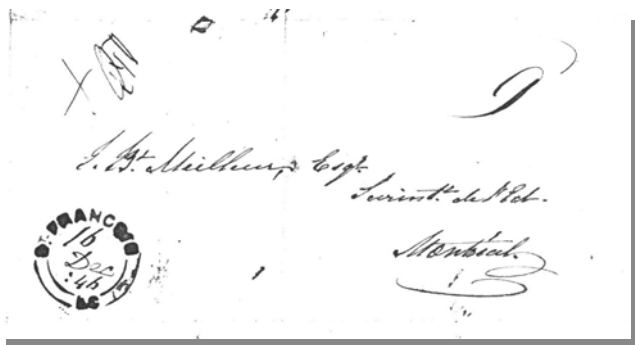 J. Bt. Meilleur, Esqr.
Surintt. de l'Ed.
Montréal.
ST. FRANCOIS
16
Dec
46
LC